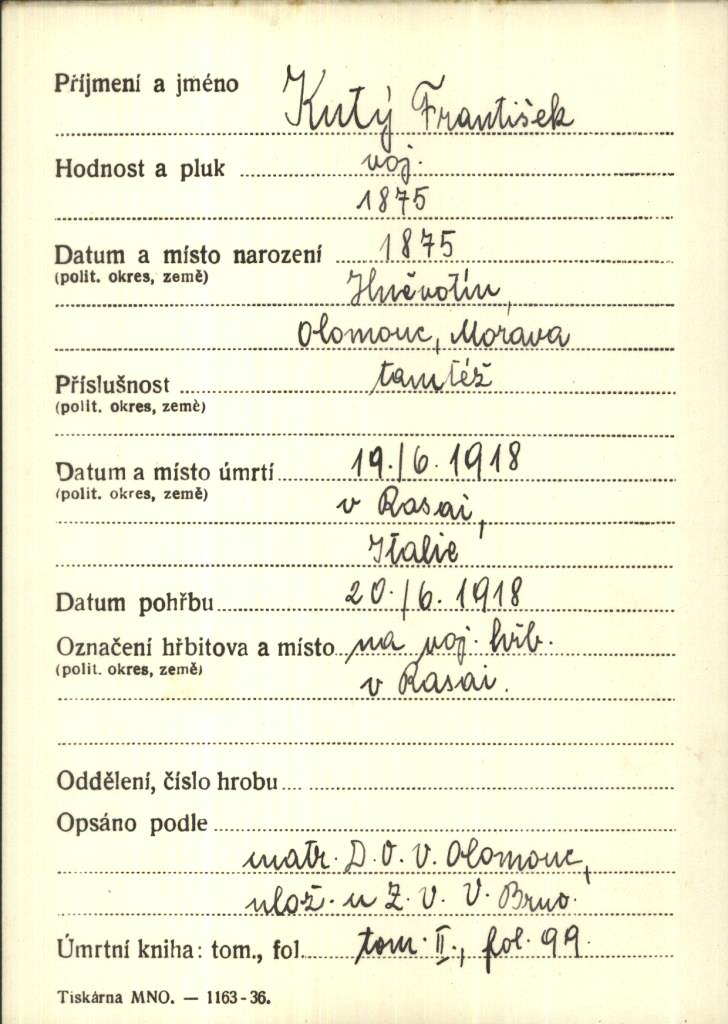 Příjmení a jméno Kutý František
Hodnost a pluk voj.
1875
Datum a místo narození 1875
(polit. okres, země)
Hněvotín,
Olomouc, Morava
Příslušnost tamtéž
(polit. okres, země)
Datum a místo úmrtí 19./6. 1918
(polit. okres, země)
v Rasai,
Italie
Datum pohřbu 20./6. 1918
Označení hřbitova a místo na voj. hřb.
(polit. okres, země)
v Rasai.
Oddělení, číslo hrobu
Opsáno podle
matr. D. O. V. Olomouc,
ulož. u Z. V. V. Brno.
Úmrtní kniha: tom., fol. tom. II., fol. 99.
Tiskárna MNO. — 1163-36.